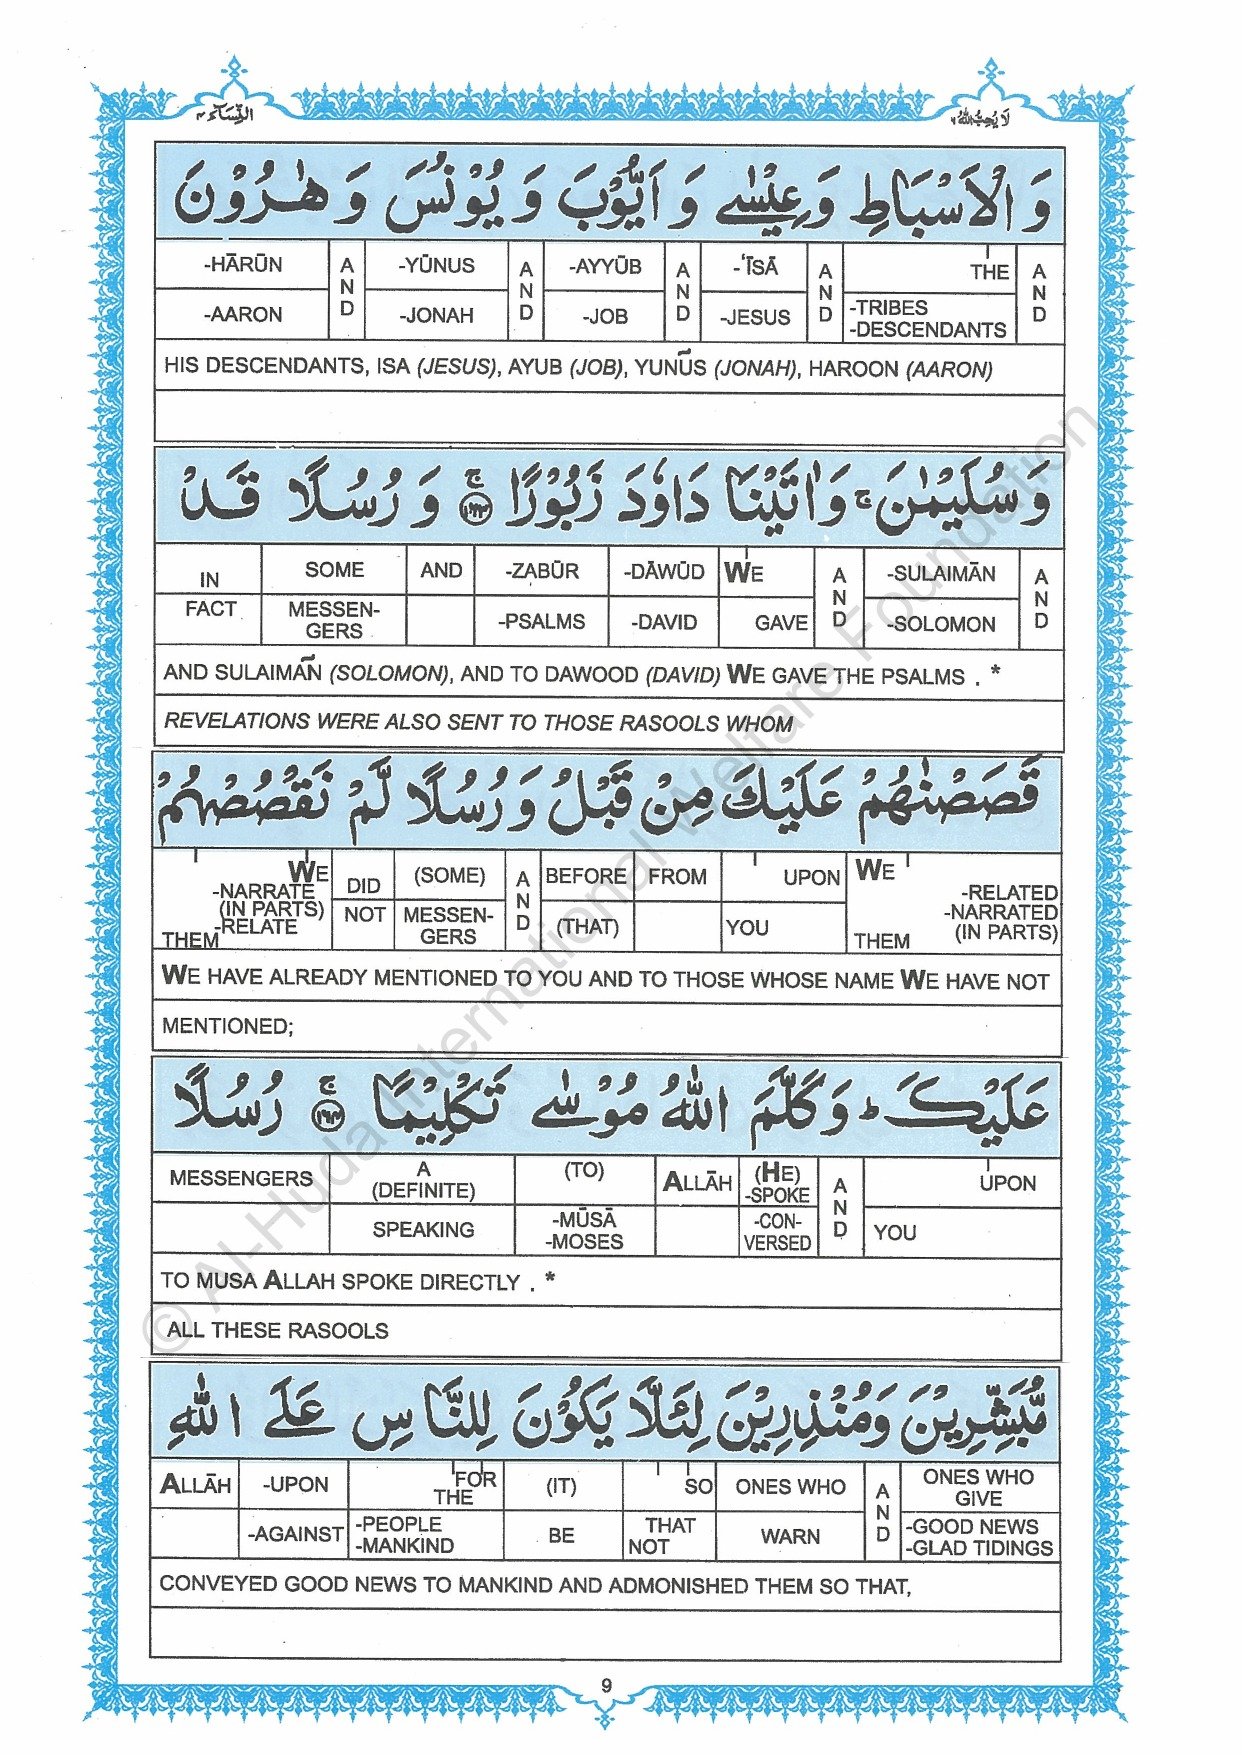 النِّسَآء ٤
لَا يُحِبُّ اللّٰهُ ٦
وَ الْاَسْبَاطِ وَ عِيْسٰى وَ اَيُّوْبَ وَ يُوْنُسَ وَ هٰرُوْنَ
-HĀRŪN A N D -YŪNUS A N D -AYYŪB A N D -‘ĪSĀ A N D THE A N D
-AARON -JONAH -JOB -JESUS -TRIBES
-DESCENDANTS
HIS DESCENDANTS, ISA (JESUS), AYUB (JOB), YUNUS (JONAH), HAROON (AARON)
وَ سُلَيْمٰنَ ۚ وَ اٰتَيْنَا دَاوٗدَ زَبُوْرًا ۚ ﴿١٦٣﴾ وَ رُسُلًا قَدْ
IN SOME AND -ZABŪR -DĀWŪD WE A N D -SULAIMĀN A N D
FACT MESSEN-
GERS -PSALMS -DAVID GAVE -SOLOMON
AND SULAIMAN (SOLOMON), AND TO DAWOOD (DAVID) WE GAVE THE PSALMS . *
REVELATIONS WERE ALSO SENT TO THOSE RASOOLS WHOM
قَصَصْنٰهُمْ عَلَيْكَ مِنْ قَبْلُ وَ رُسُلًا لَّمْ نَقْصُصْهُمْ
WE DID (SOME) A N D BEFORE FROM UPON WE
-NARRATE -RELATED
(IN PARTS) NOT MESSEN- -NARRATED
-RELATE GERS (THAT) YOU (IN PARTS)
THEM THEM
WE HAVE ALREADY MENTIONED TO YOU AND TO THOSE WHOSE NAME WE HAVE NOT
MENTIONED;
عَلَيْكَ ؕ وَ كَلَّمَ اللّٰهُ مُوْسٰى تَكْلِيْمًا ۚ ﴿١٦٤﴾ رُسُلًا
MESSENGERS A
(DEFINITE) (TO) ALLĀH (HE)
-SPOKE A N D UPON
SPEAKING -MŪSĀ
-MOSES -CON-
VERSED YOU
TO MUSA ALLAH SPOKE DIRECTLY . *
ALL THESE RASOOLS
مُّبَشِّرِيْنَ وَ مُنْذِرِيْنَ لِئَلَّا يَكُوْنَ لِلنَّاسِ عَلَى اللّٰهِ
ALLĀH -UPON FOR
THE (IT) SO ONES WHO A N D ONES WHO
GIVE
-AGAINST -PEOPLE
-MANKIND BE THAT
NOT WARN -GOOD NEWS
-GLAD TIDINGS
CONVEYED GOOD NEWS TO MANKIND AND ADMONISHED THEM SO THAT,
9
© Al-Huda International Welfare Foundation